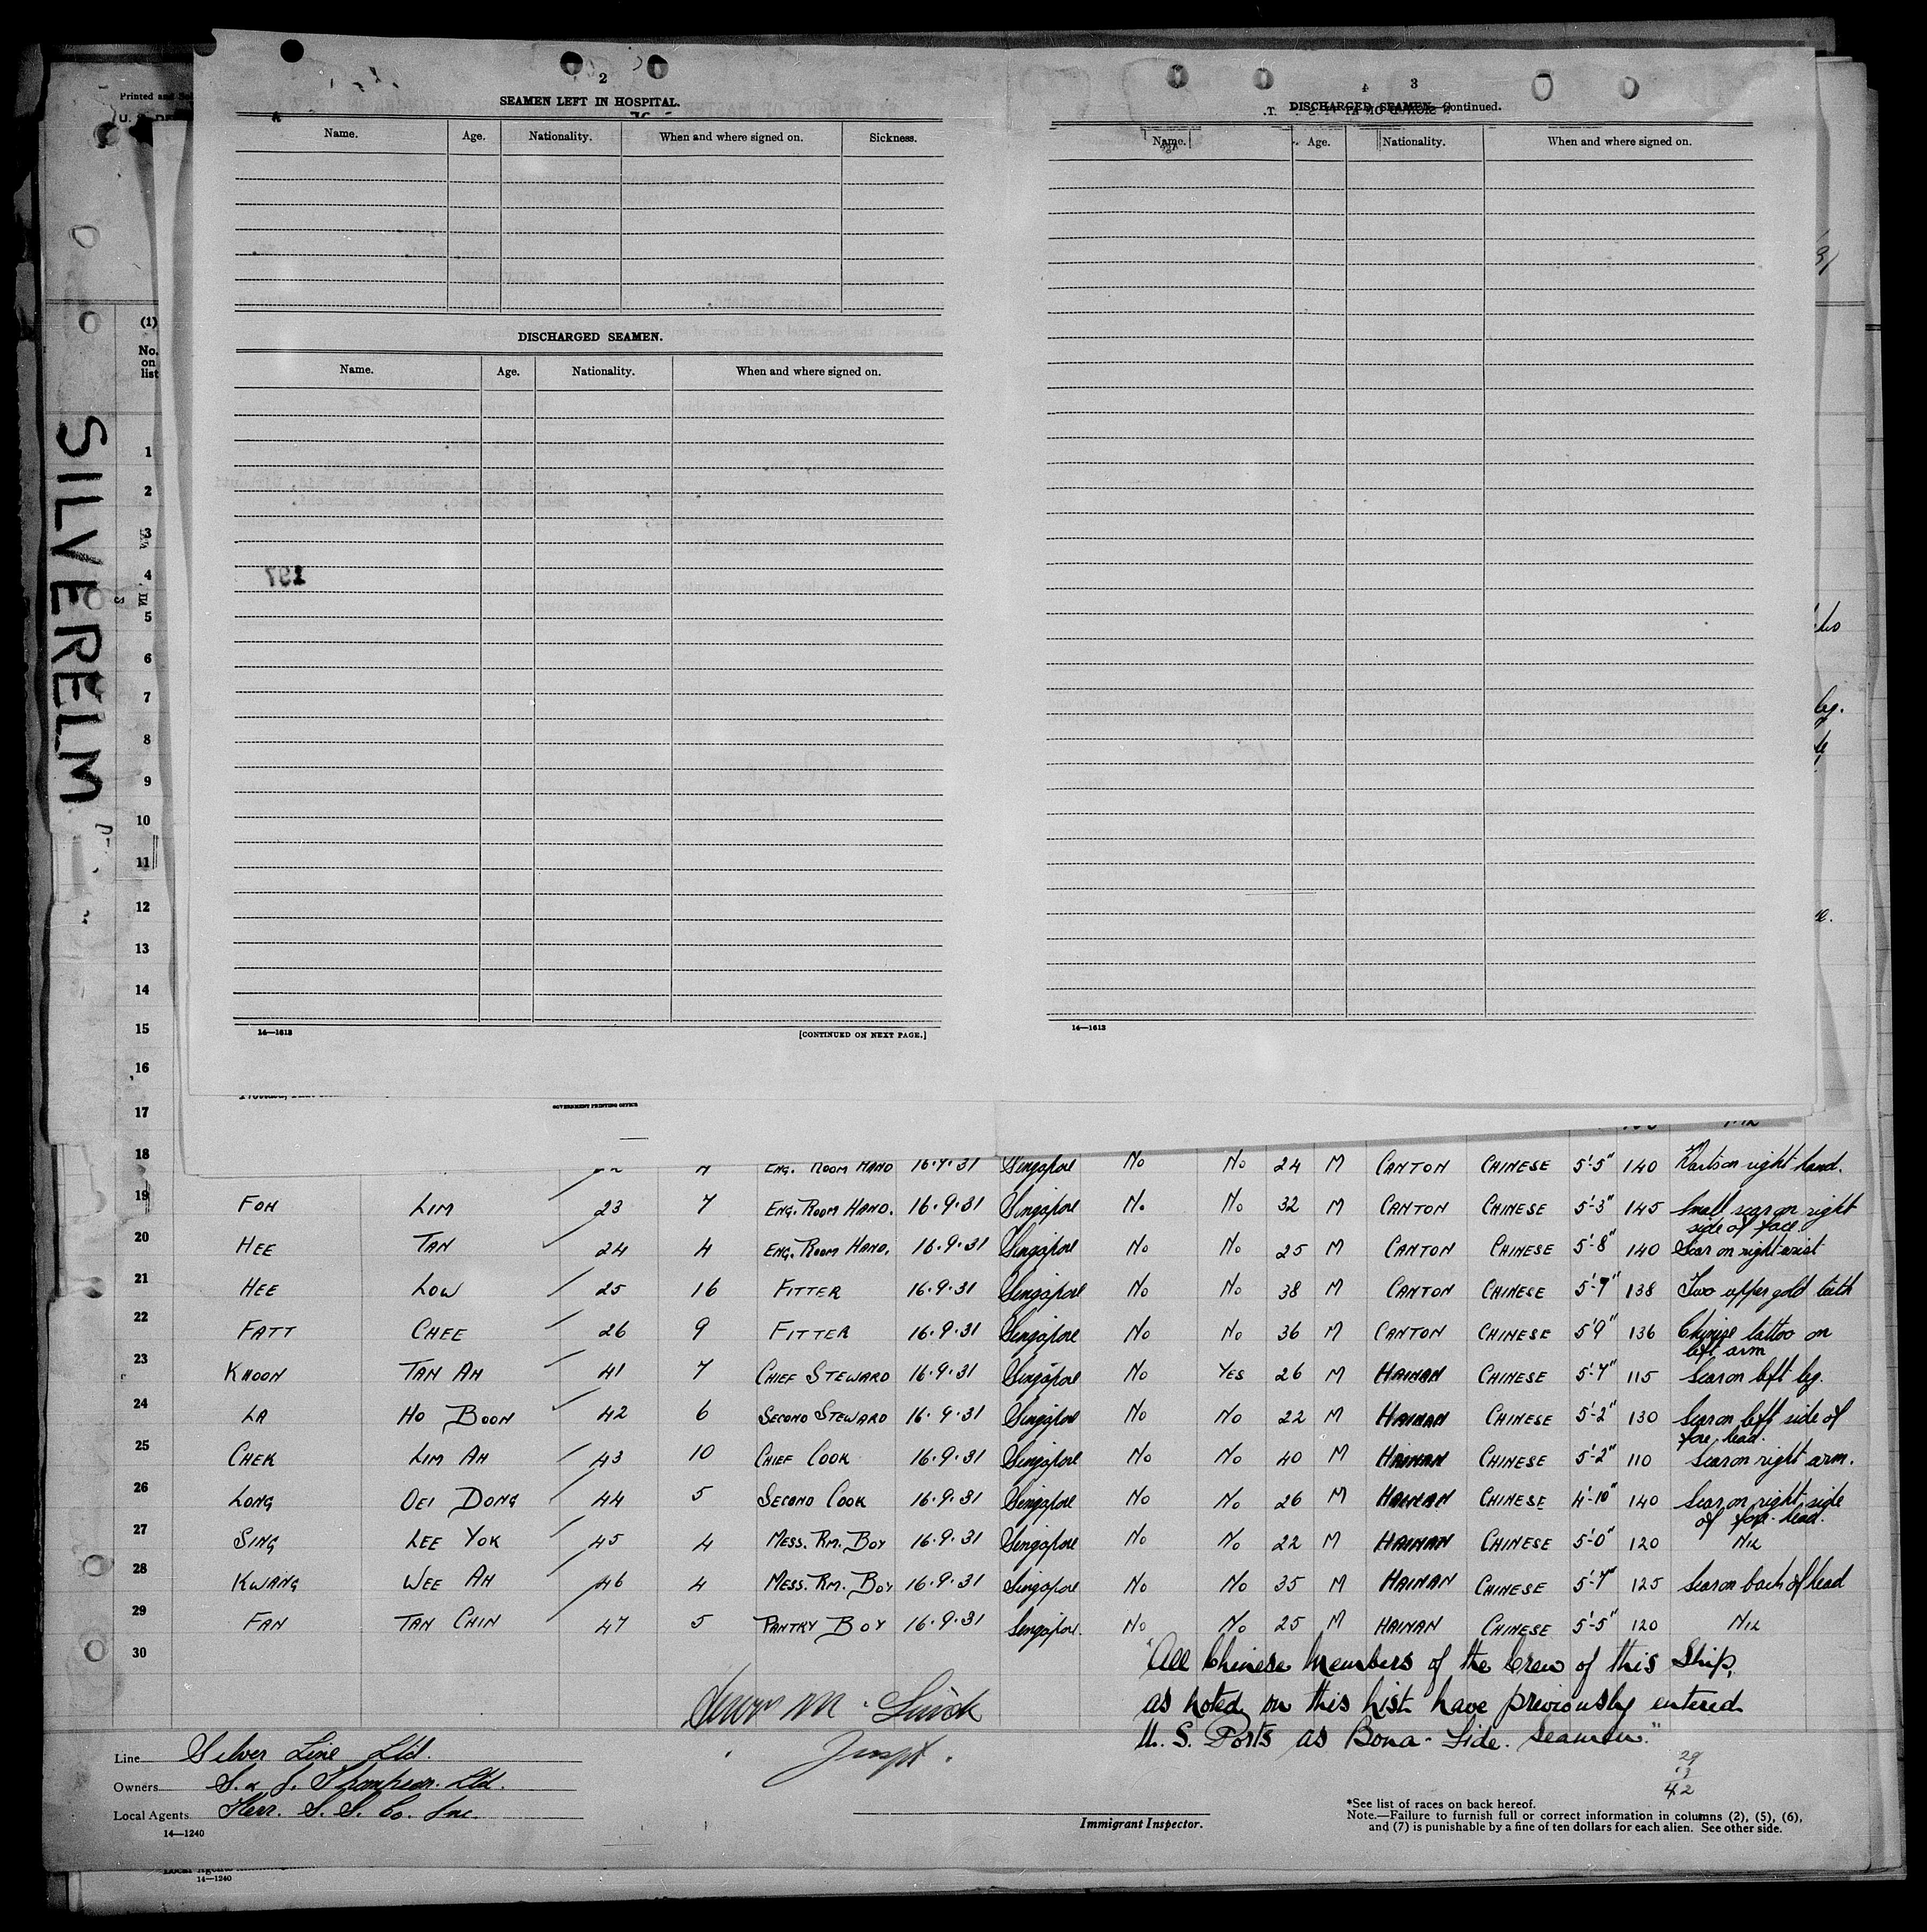 SILVERELM
Printed and
U. S. DE
(1)
No.
on
list
2
SEAMEN LEFT IN HOSPITAL.
Name. Age. Nationality. When and where signed on. Sickness.
DISCHARGED SEAMEN.
Name. Age. Nationality. When and where signed on.
14—1613 [CONTINUED ON NEXT PAGE.]
3
DISCHARGED SEAMEN—Continued.
Name. Age. Nationality. When and where signed on.
14—1613
GOVERNMENT PRINTING OFFICE
1
2
3
4
5
6
7
8
9
10
11
12
13
14
15
16
17
18 ENG. ROOM HAND 16.9.31 Singapore No No 24 M CANTON CHINESE 5'-5" 140 right hand.
19 FOH LIM 23 7 ENG. ROOM HAND. 16.9.31 Singapore No No 32 M CANTON CHINESE 5'-3" 145 Small scar on right
side of face
20 HEE TAN 24 4 ENG. ROOM HAND. 16.9.31 Singapore No No 25 M CANTON CHINESE 5'-8" 140 Scar on right wrist
21 HEE LOW 25 16 FITTER 16.9.31 Singapore No No 38 M CANTON CHINESE 5'-7" 138 Two upper gold teeth
22 FATT CHEE 26 9 FITTER 16.9.31 Singapore No No 36 M CANTON CHINESE 5'9" 136 Chinese tattoo on
left arm
23 KHOON TAN AH 41 7 CHIEF STEWARD 16.9.31 Singapore No YES 26 M HAINAN CHINESE 5'-7" 115 Scar on left leg.
24 LA HO BOON 42 6 SECOND STEWARD 16.9.31 Singapore No No 22 M HAINAN CHINESE 5'-2" 130 Scar on left side of
fore-head.
25 CHEK LIM AH 43 10 CHIEF COOK 16.9.31 Singapore No No 40 M HAINAN CHINESE 5'-2" 110 Scar on right arm.
26 LONG OEI DONG 44 5 SECOND COOK 16.9.31 Singapore No No 26 M HAINAN CHINESE 4'-10" 140 Scar on right side
of fore-head.
27 SING LEE YOK 45 4 MESS. RM. BOY 16.9.31 Singapore No No 22 M HAINAN CHINESE 5'-0" 120 NIL
28 KWANG WEE AH 46 4 MESS. RM. BOY 16.9.31 Singapore No No 35 M HAINAN CHINESE 5'-7" 125 Scar on back of head
29 FAN TAN CHIN 47 5 PANTRY BOY 16.9.31 Singapore. No No 25 M HAINAN CHINESE 5'-5" 120 NIL
30
"All Chinese Members of the Crew of this Ship,
as noted on this list have previously entered
U. S. Ports as Bona-Fide. Seamen."
Inspt.
29
13
42
Line Silver Line Ltd.
Owners S. & J. Thompson. Ltd.
Local Agents Kerr. S. S. Co. Inc.
14—1240
Immigrant Inspector.
*See list of races on back hereof.
Note.—Failure to furnish full or correct information in columns (2), (5), (6),
and (7) is punishable by a fine of ten dollars for each alien. See other side.
14—1240